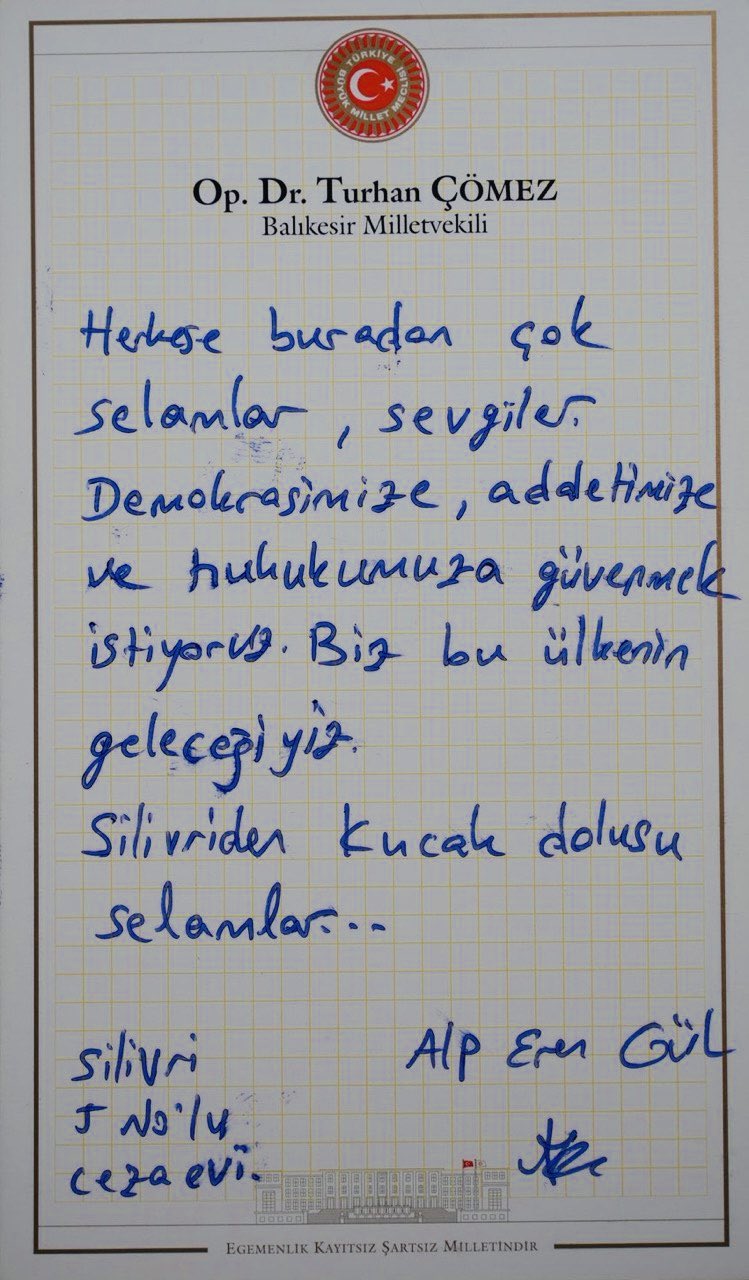 TÜRKİYE BÜYÜK MİLLET MECLİSİ
Op. Dr. Turhan ÇÖMEZ
Balıkesir Milletvekili
Herkese buradan çok
selamlar, sevgiler.
Demokrasimize, addetimize
ve hukukumuza güvenmek
istiyoruz. Biz bu ülkenin
geleceğiyiz.
Silivriden kucak dolusu
selamlar...
Alp Eren GÜL
Silivri
5 No'lu
cezaevi.
EGEMENLİK KAYITSIZ ŞARTSIZ MİLLETİNDİR